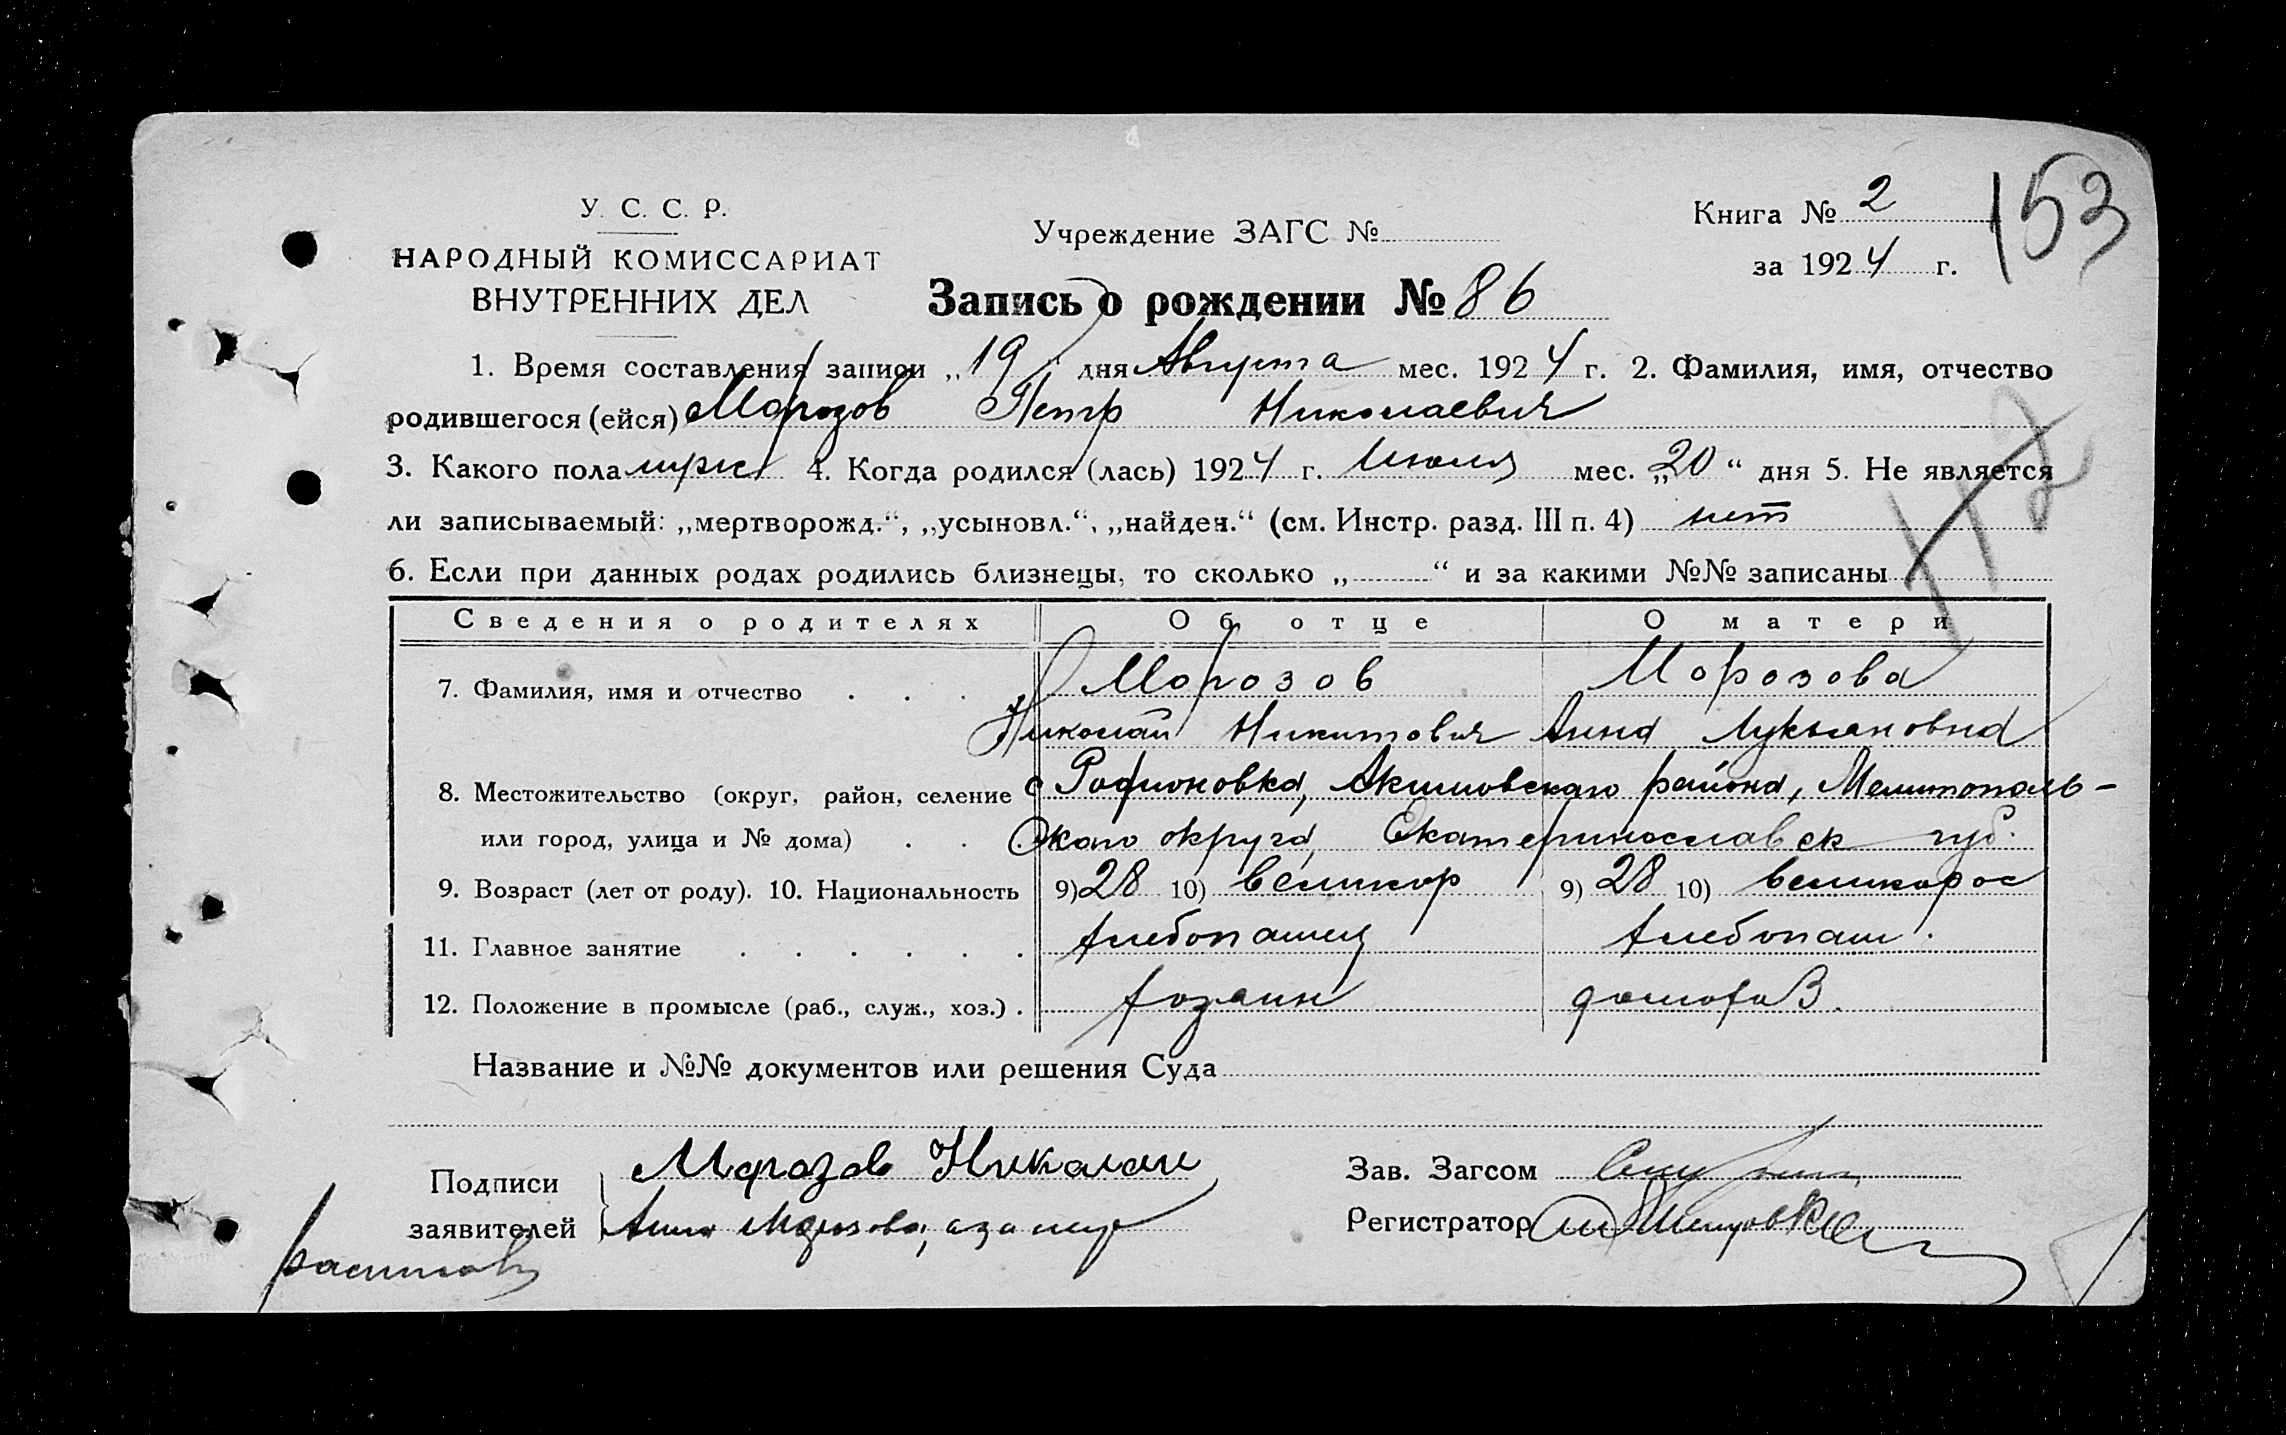 У. С. С. Р.
НАРОДНЫЙ КОМИССАРИАТ
ВНУТРЕННИХ ДЕЛ
Учреждение ЗАГС №
Книга № 2
153
за 1924 г.
Запись о рождении № 86
1. Время составления записи „19“ дня Августа мес. 1924 г. 2. Фамилия, имя, отчество
родившегося (ейся) Морозов Петр Николаевич
3. Какого пола муж 4. Когда родился (лась) 1924 г. Июля мес. „20“ дня 5. Не является
ли записываемый: „мертворожд.“, „усыновл.“, „найден.“ (см. Инстр. разд. III п. 4) нет
112
6. Если при данных родах родились близнецы, то сколько „ “ и за какими №№ записаны
Сведения о родителях Об отце О матери
7. Фамилия, имя и отчество Морозов Морозова
Николай Никитович Анна Лукьяновна
8. Местожительство (округ, район, селение с Родионовка, Акимовского района, Мелитополь-
или город, улица и № дома) ского округа, Екатеринославск губ.
9. Возраст (лет от роду). 10. Национальность 9) 28 10) великор 9) 28 10) великорос
11. Главное занятие хлебопашец хлебопаш.
12. Положение в промысле (раб., служ., хоз.) хозяин домохоз.
Название и №№ документов или решения Суда
Подписи заявителей Морозов Николай
Анна Морозова, а за нер
расписов
Зав. Загсом
Регистратор